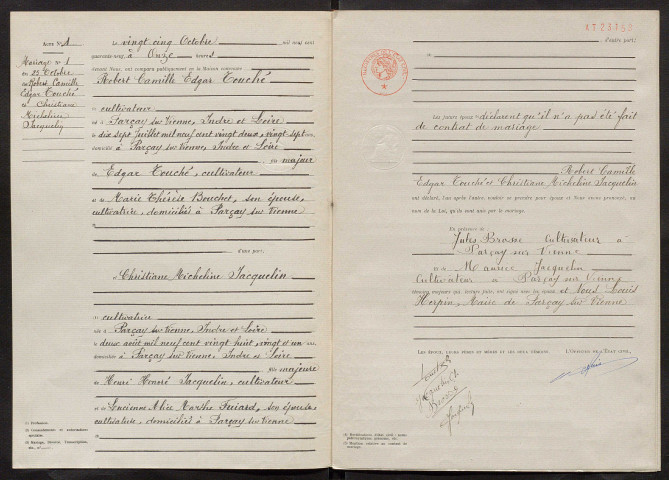 Acte N° 1
Mariage n° 1
du 25 Octobre
Robert Camille
Edgar Touché
et Christiane
Micheline
Jacquelin
Le vingt cinq Octobre mil neuf cent
quarante-neuf, à Onze heures
devant Nous, ont comparu publiquement en la Maison commune
Robert Camille Edgar Touché
cultivateur
né à Parçay sur Vienne, Indre et Loire
le dix sept juillet mil neuf cent vingt deux, vingt sept ans,
domicilié à Parçay sur Vienne, Indre et Loire
fils majeur
de Edgar Touché, cultivateur
et de Marie Thérèse Bouchet, son épouse,
cultivatrice, domiciliés à Parçay sur Vienne
d'une part,
et Christiane Micheline Jacquelin
cultivatrice
née à Parçay sur Vienne, Indre et Loire
le deux août mil neuf cent vingt huit, vingt et un ans,
domiciliée à Parçay sur Vienne, Indre et Loire
fille majeure
de Henri Honoré Jacquelin, cultivateur
et de Lucienne Alice Marthe, son épouse
cultivatrice, domiciliés à Parçay sur Vienne
(1) Profession.
d'autre part;
Les futurs époux déclarent qu'il n'a pas été fait
de contrat de mariage
Robert Camille
Edgar Touché et Christiane Micheline Jacquelin
ont déclaré, l'un après l'autre, vouloir se prendre pour époux et Nous avons prononcé, au
nom de la Loi, qu'ils sont unis par le mariage.
En présence de
Jules Brosse Cultivateur à
Parçay sur Vienne
et de Maurice Jacquelin
Cultivateur à Parçay sur Vienne
témoins majeurs qui, lecture faite, ont signé avec les époux et Nous Louis
Herpin, Maire de Parçay sur Vienne
Les époux, leurs pères et mères et les deux témoins.
L'Officier de l'État civil,
Brosse